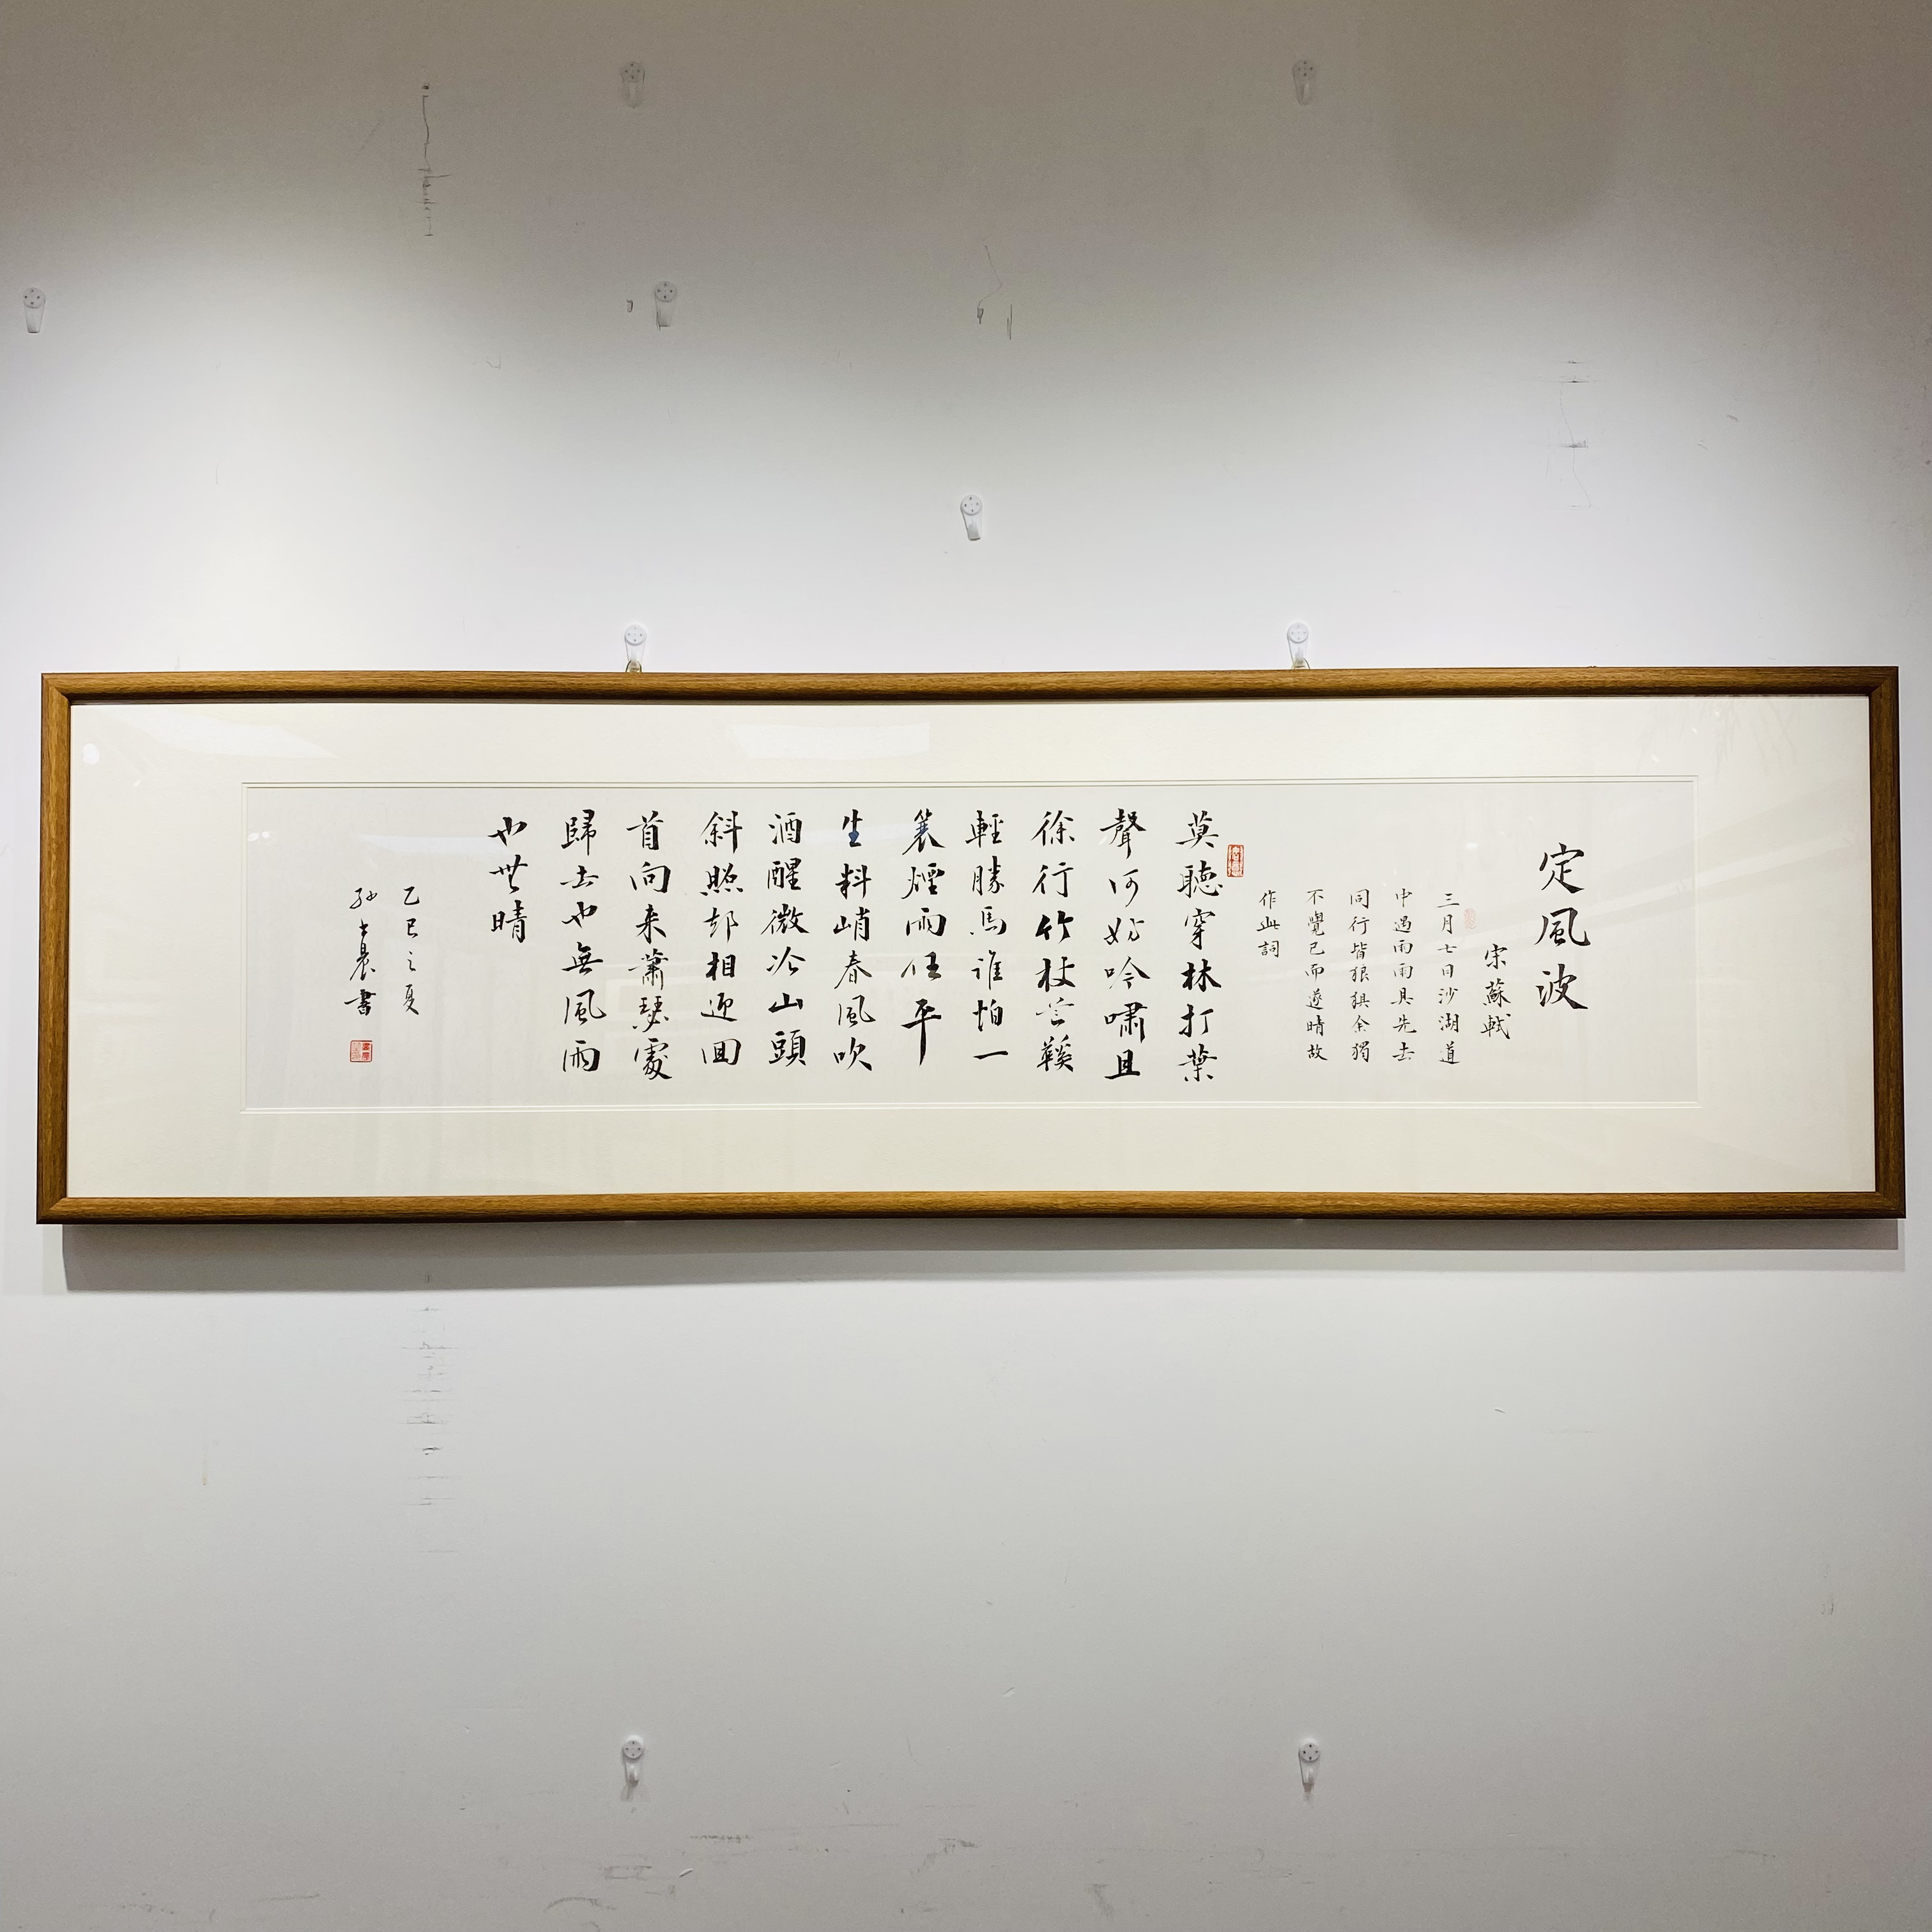 定風波
宋蘇軾
三月七日沙湖道
中遇雨雨具先去
同行皆狼狽余獨
不覺已而遂晴故
作此詞
莫聽穿林打葉
聲何妨吟嘯且
徐行竹杖芒鞵
輕勝馬誰怕一
蓑煙雨任平
生料峭春風吹
酒醒微冷山頭
斜照却相迎回
首向来蕭瑟處
歸去也無風雨
也無晴
乙巳之夏
孙士晨書